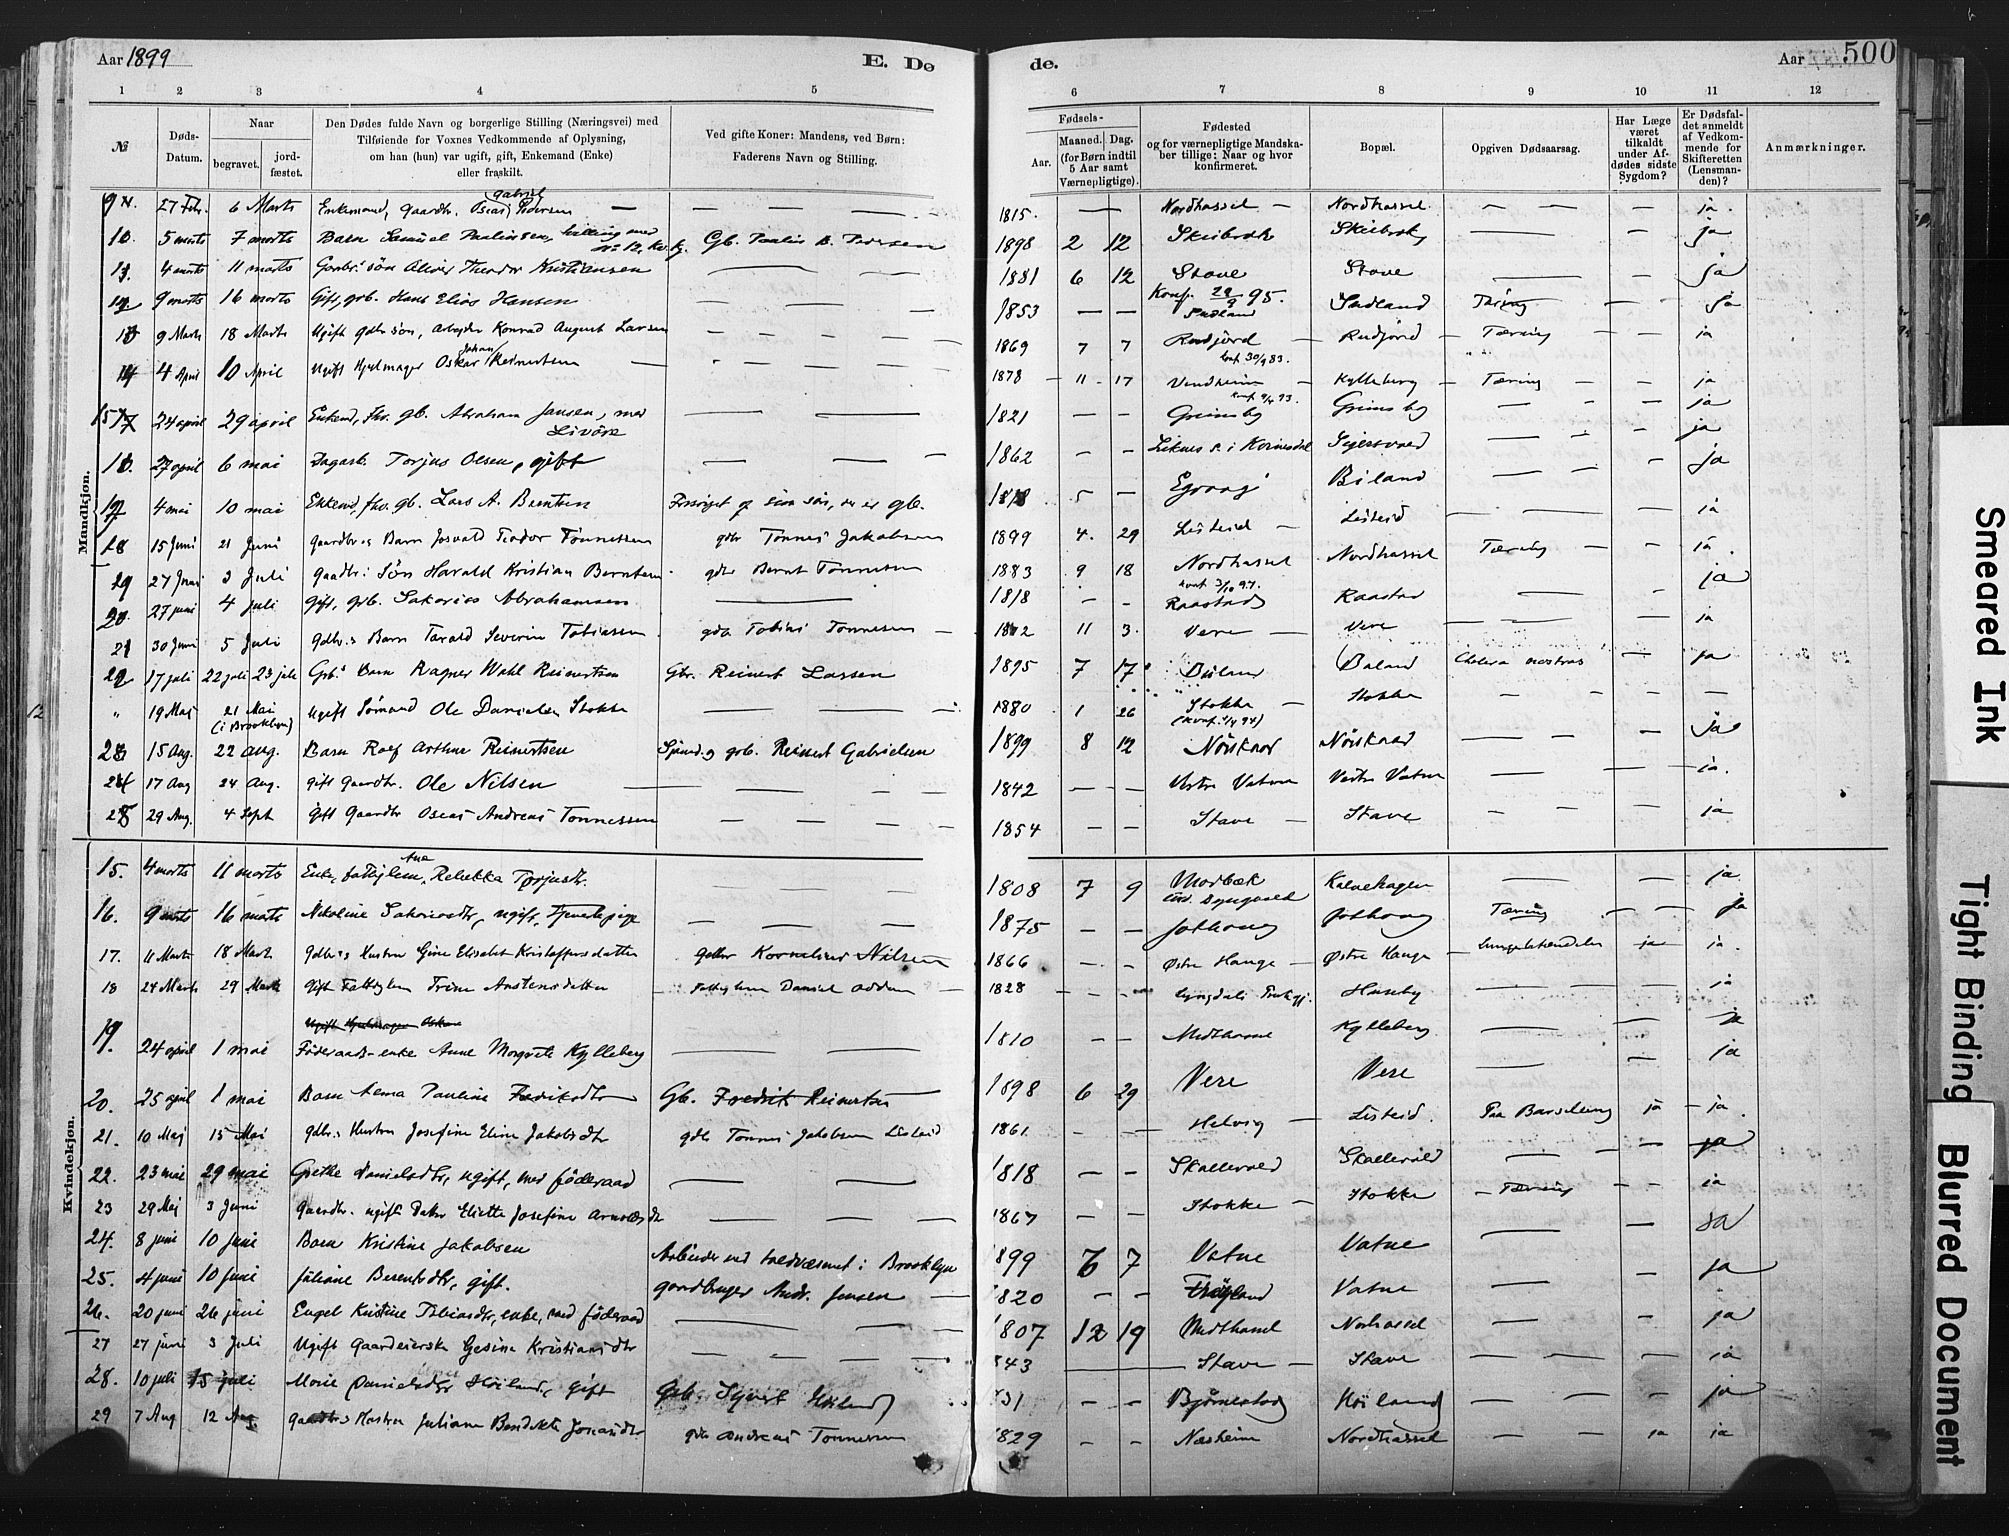 Aar 1899
E. Dø
de.
Aar
500
1 2 3 4 5
6 7 8 9 10 11 12
№
Døds-Datum.
Naar
begravet.
jord-fæstet.
Den Dødes fulde Navn og borgerlige Stilling (Næringsvei) med
Tilføiende for Voxnes Vedkommende af Oplysning,
om han (hun) var ugift, gift, Enkemand (Enke)
eller fraskilt.
Ved gifte Koner: Mandens, ved Børn:
Faderens Navn og Stilling.
Fødsels-
Aar.
Maaned. Dag.
(for Børn indtil
5 Aar samt
Værnepligtige).
Fødested
og for værnepligtige Mandska-
ber tillige: Naar og hvor
konfirmeret.
Bopæl.
Opgiven Dødsaarsag.
Har Læge
været
tilkaldt
under Af-
dødes sidste
Sygdom?
Er Dødsfal-
det anmeldt
af Vedkom-
mende for
Skifteretten
(Lensman-
den)?
Anmærkninger.
Mandkjøn.
9 27 Febr. 6 Marts Enkemand, Gaardbr. Oseas Gabriel Pedersen — — 1815. — Nordhassel — Nordhassel — — — ja.
10 5 marts 7 marts Barn Samuel Paulinsen, tvilling med No 12, kv.kj. Gb. Paulin B. Pedersen 1898 2 12 Skeibrok Skeibrok — — ja
11 4 marts 11 marts Gaardbr. søn Oliver Theodor Kristiansen — — 1881 6 12 Stave Stave — — ja
Konf. 29/9 95.
12 9 marts 16 marts Gift, grb. Hans Elias Hansen — — 1853 — — Sudland Sudland Tæring — — ja
13 9 Marts 18 Marts Ugift gdbr søn, arbeider Konrad August Larsen — — 1869 7 7 Rudjord — Rudjord — Tæring — — ja
konf. 30/9 83.
14 4 April 10 April Ugift Hjulmager Oskar Johan Reinertsen — 1878 — 11 — 17 Vindheim — Kylleberg — Tæring — — ja
15 24 april 29 april Enkem, fhv. gb. Abraham Jansen, med Livøre — — 1821 — — Grimsby Grimsby — — ja
16 27 april 6 mai Dagarb. Torjus Olsen, gift — — 1862 — — Liknes s. i Kvinesdal — — ja
17 4 mai 10 mai Enkemd, fhv. gb. Lars A. Berntsen Forsørget af sin søn, der er gb. 1818 5 — Egvaag Biland — — ja
18 15 Juni 21 Juni Gaardbr.s Barn Josvald Teodor Tønnessen gdbr Tønnes Jakobsen 1899 4. 29 Listeid — Listeid — — ja
19 27 Juni 3 Juli Gaardbr. Søn Harald Kristian Berntsen gdbr Bernt Tønnesen 1883 9 18 Nordhassel Nordhassel Tæring — — ja
konf. 3/10 97.
20 27 juni 4 juli Gift, grb. Sakarias Abrahamsen — 1818 — — Raastad Raastad — — ja
21 30 Juni 5 Juli Gdbr.s Barn Tarald Severin Tobiassen gdbr Tobias Tønnesen — 11 3. Vere — Vere — — ja
22 17 juli 22 juli 23 juli Grb.s Barn Ragner Wahl Reinertsen Gbr. Reinert Larsen 1895 7 17 Biland Baland Cholera nostras — ja
" 19 Maj 21 Mai (i Brooklyn) Ugift Sømand Ole Danielsen Stokke — — 1880 1 26 Stokke — Stokke — — —
(Konf. 94)
23 15 Aug. 22 Aug. Barn Rolf Arthur Reinertsen Sømd. og grb. Reinert Gabrielsen 1899 8 12 Nøiskaar Nøiskaar — — ja
24 17 Aug 24 Aug. Gift Gaardbr. Ole Nilsen — — 1842 — — Vestre Vatne Vestre Vatne — — — ja.
25 29 Aug. 4 Sept Gift Gaardbr Oseas Andreas Tønnessen — — 1854 — — Stave — Stave — — ja
Kvindekjøn.
15. 4 marts 11 marts Enke, fattiglem, Ane Rebekka Torjusdtr. — — 1808 7 9 Modbæk Kalvehagen — — ja
16. 9 marts 16 marts Nikoline Sakariasdtr, ugift, tjenestepige — — 1875 — — Jothoug Jothoug Tæring — — ja
17. 11 Marts 18 Marts Gdbr.s Hustru Gine Elisabet Kristoffersdatter Gdbr Kornelius Nilsen 1866 — — Østre Hauge — Østre Hauge — Lungebetændelse ja — ja.
18 24 Marts 29 Marts Gift Fattiglem Trine Austensdatter — Fattiglem Daniel Oddsen 1828 — — Lyngdals Præstgj. Huseby — — ja
Ugift Hjulmager Oskar
19. 24 april 1 mai Føderaads-enke Anne Margrete Kylleberg — — 1810 — — Midthassel Kylleberg — — ja
20. 25 april 1 mai Barn Pauline Fredriksdtr Gb. Fredrik Reinertsen 1898 6 29 Vere Vere — — ja
21. 10 Maj 15 Mai Gdbr.s Hustru Josefine Eline Jakobsdtr gdbr Tønnes Jakobsen Listeid 1861 — — Helvig — Listeid. Paa Barselseng ja — ja.
22. 23 mai 29 mai Grethe Danielsdtr, ugift, med føderaad — — 1818 — — Skollevold Skollevold — — ja
23 29 Maj 3 Juni Gaardbr. ugift Datter Eliette Josefine — — 1867 — — Stokke — Stokke — Tæring — — ja
24. 8 juni 10 juni Barn Kristine Jakobsen Arbeider ved toldvæsenet i Brooklyn 1899 6 7 Vatne Vatne — — ja
25. 4 juni 10 juni Juliane Berentsdtr, gift. gaardbruger Andr. Jensen — 1820 — — Frøyland Vatne — — ja
26. 20 juni 26 juni Engel Kristine Tobiasdtr, enke, med føderaad — — 1807 12 19 Midthassel Norhassel — — ja
27 27 juni 3 Juli Ugift Gaardeierske Gesine Kristiansdtr — — 843 — Stave — Stave — — — ja
28. 10 juli 15 juli Marie Danielsdtr Høiland, gift Grb. Sigvart Høiland — — Bjørnestad Høiland — — — ja
29 7 Aug 12 Aug Gaardbr.s Hustru Juliane Bendikte Jonasdtr gdbr Andreas Tønnesen 1829 — — Næsheim Nordhassel — — ja ja
12
Smeared Ink
Tight Binding
Blurred Document